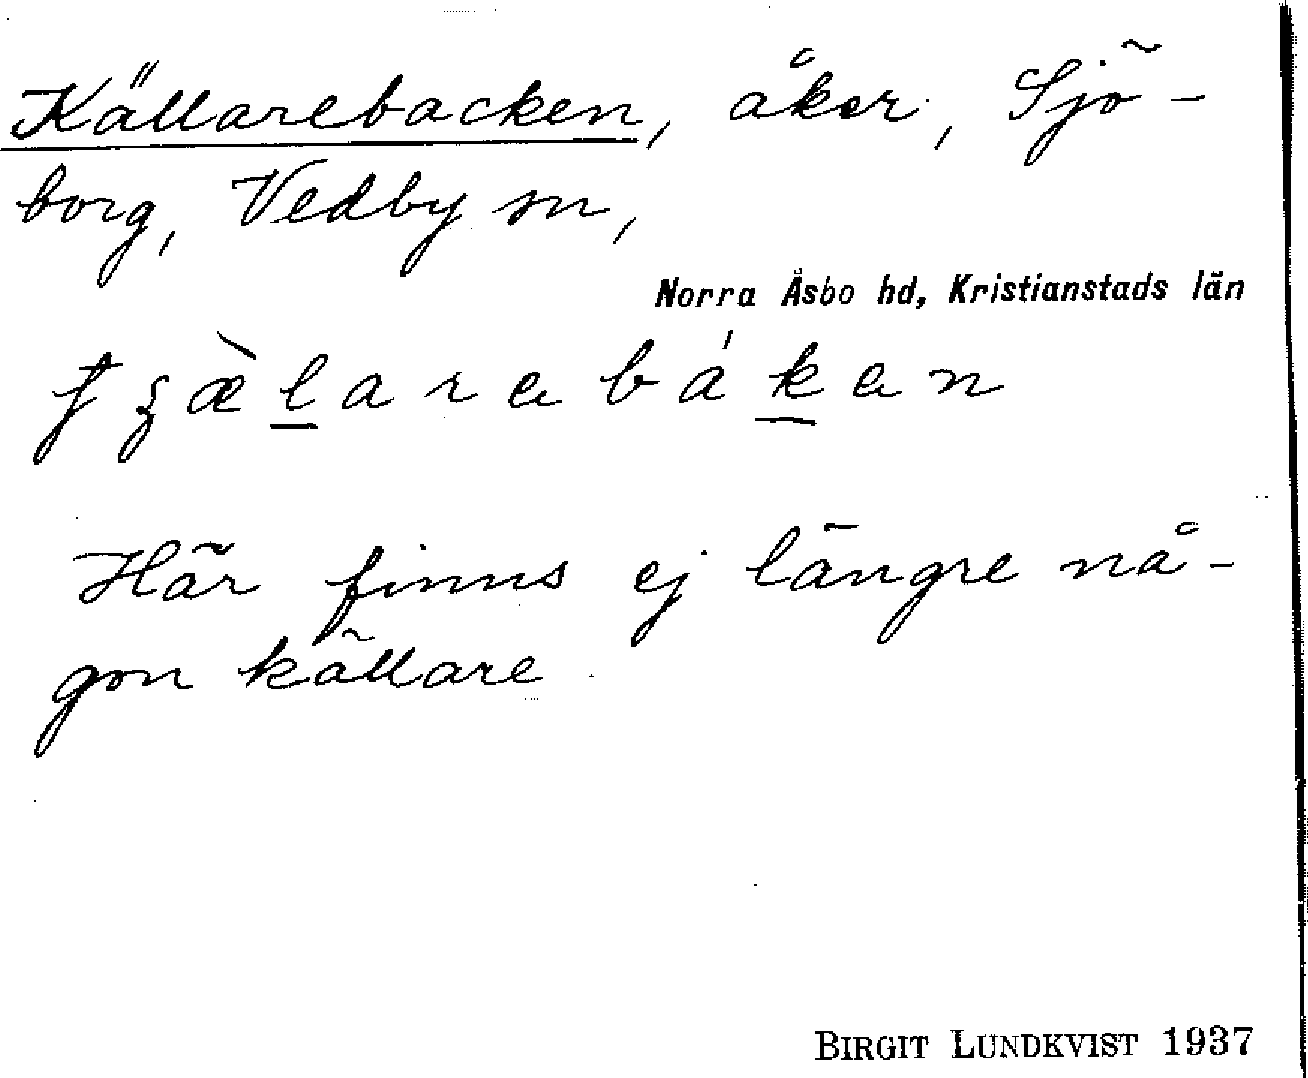 Källarebacken, åker, Sjö-
borg, Vedby sn,
Norra Åsbo hd, Kristianstads län
Här finns ej längre nå-
gon källare
BIRGIT LUNDKVIST 1937